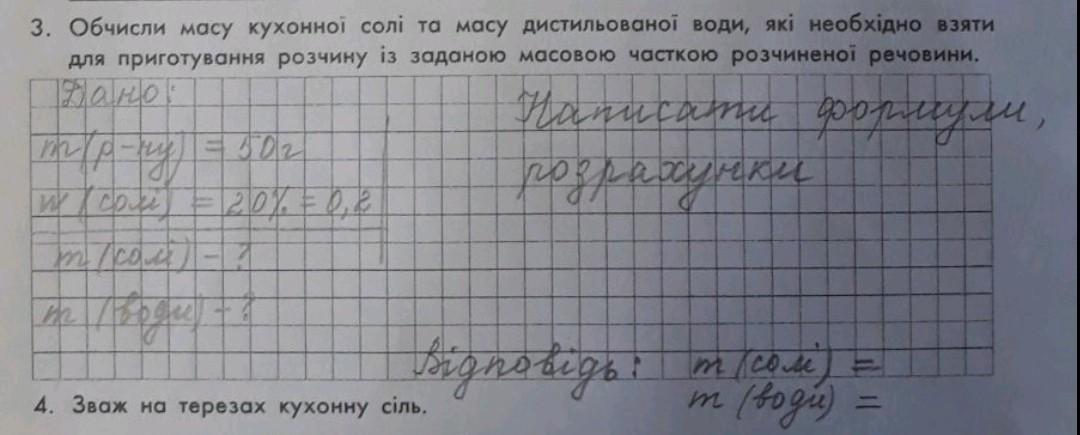 3. Обчисли масу кухонної солі та масу дистильованої води, які необхідно взяти
для приготування розчину із заданою масовою часткою розчиненої речовини.
Дано:
Написати формули,
m(р-ну) = 50г
розрахунки
w (солі) = 20% = 0,2
m (солі) - ?
m (води) - ?
Відповідь: m (солі) =
m (води) =
4. Зваж на терезах кухонну сіль.